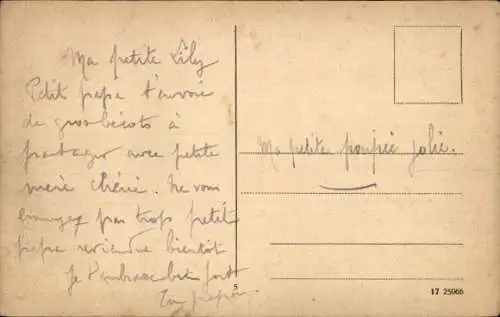 Ma petite Lily
Petit papa t'envoie
de gros bécots à
partager avec petite
mère chérie. Ne vous
ennuyez pas trop petit
papa reviendra bientôt
Je t'embrasse bien fort
Ton papa.
Ma petite poupée jolie.
5
17 25066